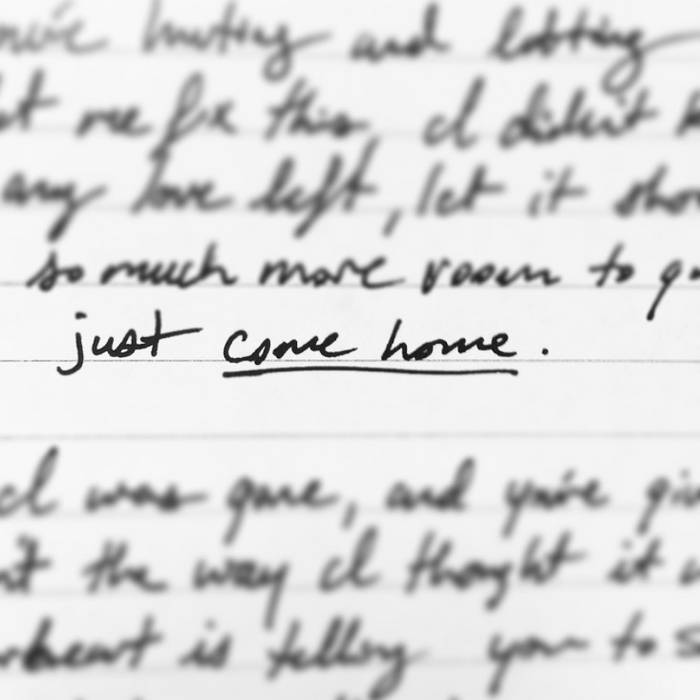 you're hurting and letting
let me fix this I didn't
any love left, let it
so much more room to
just come home.
I was gone, and you're
the way I thought it
heart is telling you to